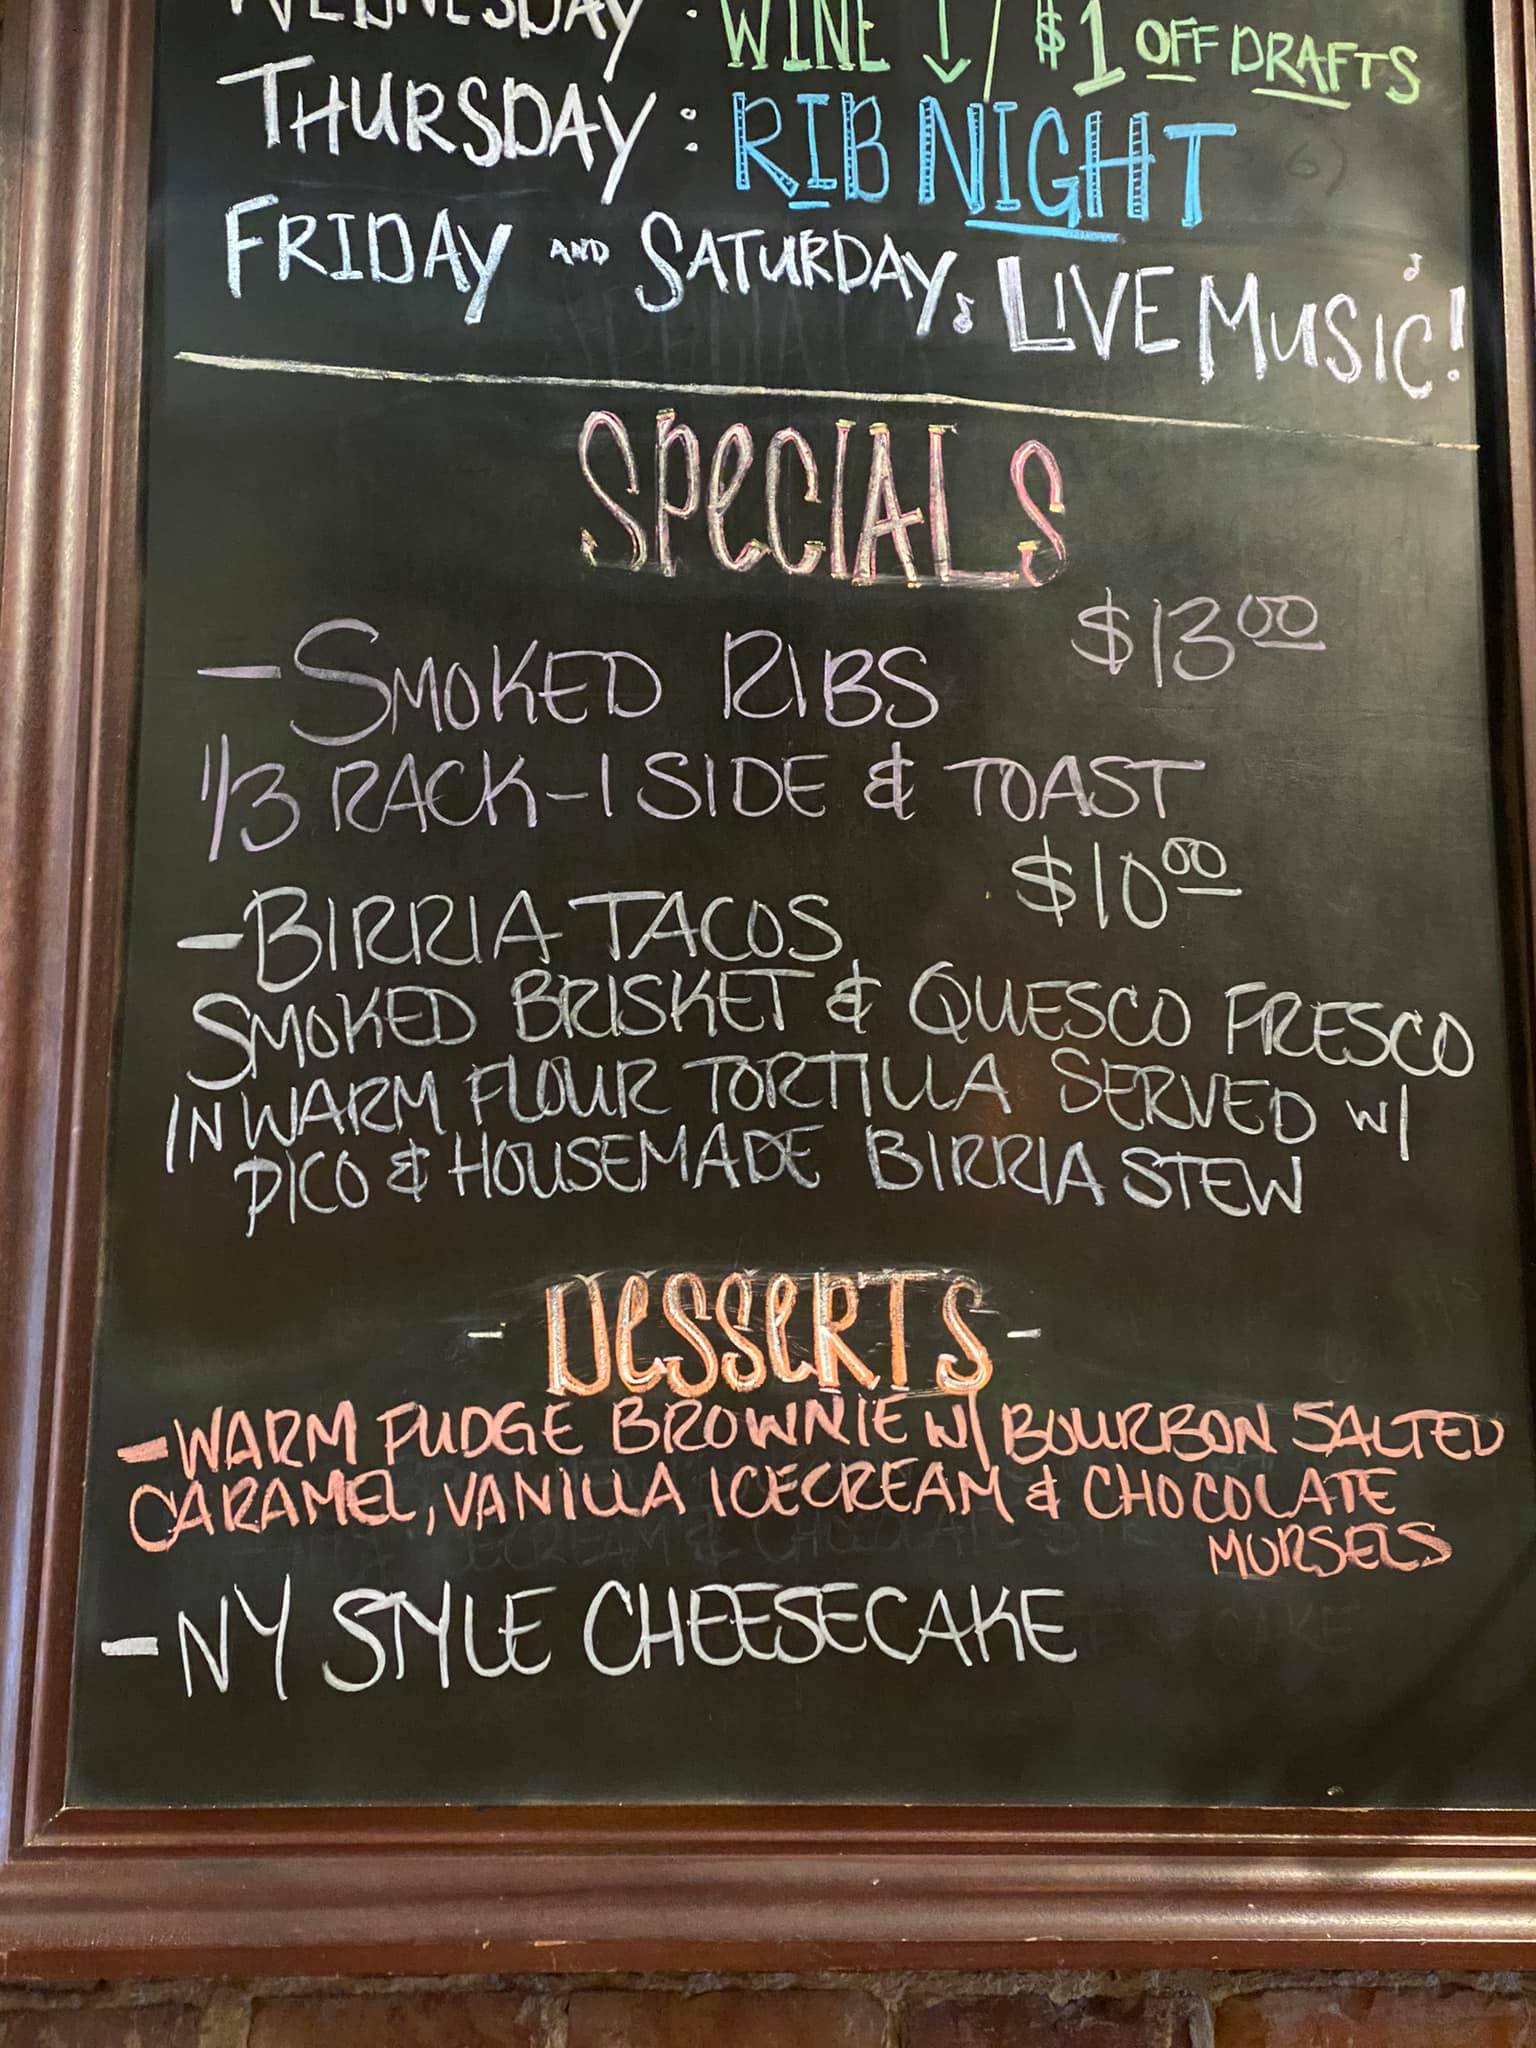 WEDNESDAY: WINE ↓ / $1 OFF DRAFTS
THURSDAY: RIB NIGHT
FRIDAY AND SATURDAY, ♪ LIVE MUSIC! ♪
SPECIALS
- SMOKED RIBS $13.00
1/3 RACK - 1 SIDE & TOAST
- BIRRIA TACOS $10.00
SMOKED BRISKET & QUESCO FRESCO
IN WARM FLOUR TORTILLA SERVED W/
PICO & HOUSEMADE BIRRIA STEW
- DESSERTS -
- WARM FUDGE BROWNIE W/ BOURBON SALTED
CARAMEL, VANILLA ICECREAM & CHOCOLATE
MORSELS
- NY STYLE CHEESECAKE